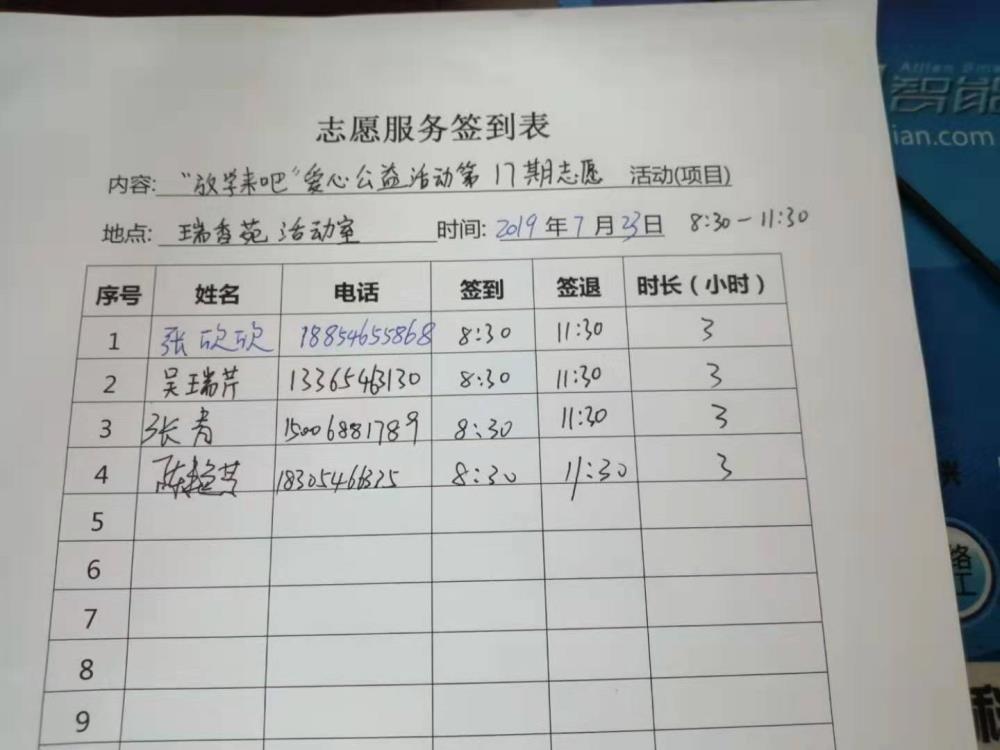 志愿服务签到表
内容: "放学来吧"爱心公益活动第17期志愿 活动(项目)
地点: 瑞香苑活动室 时间: 2019年7月23日 8:30-11:30
序号 姓名 电话 签到 签退 时长(小时)
1 张欣欣 18854655868 8:30 11:30 3
2 吴瑞芹 13365463130 8:30 11:30 3
3 张青 15006881789 8:30 11:30 3
4 陈艳芸 18305466325 8:30 11:30 3
5
6
7
8
9
智能
ian.com
络
工